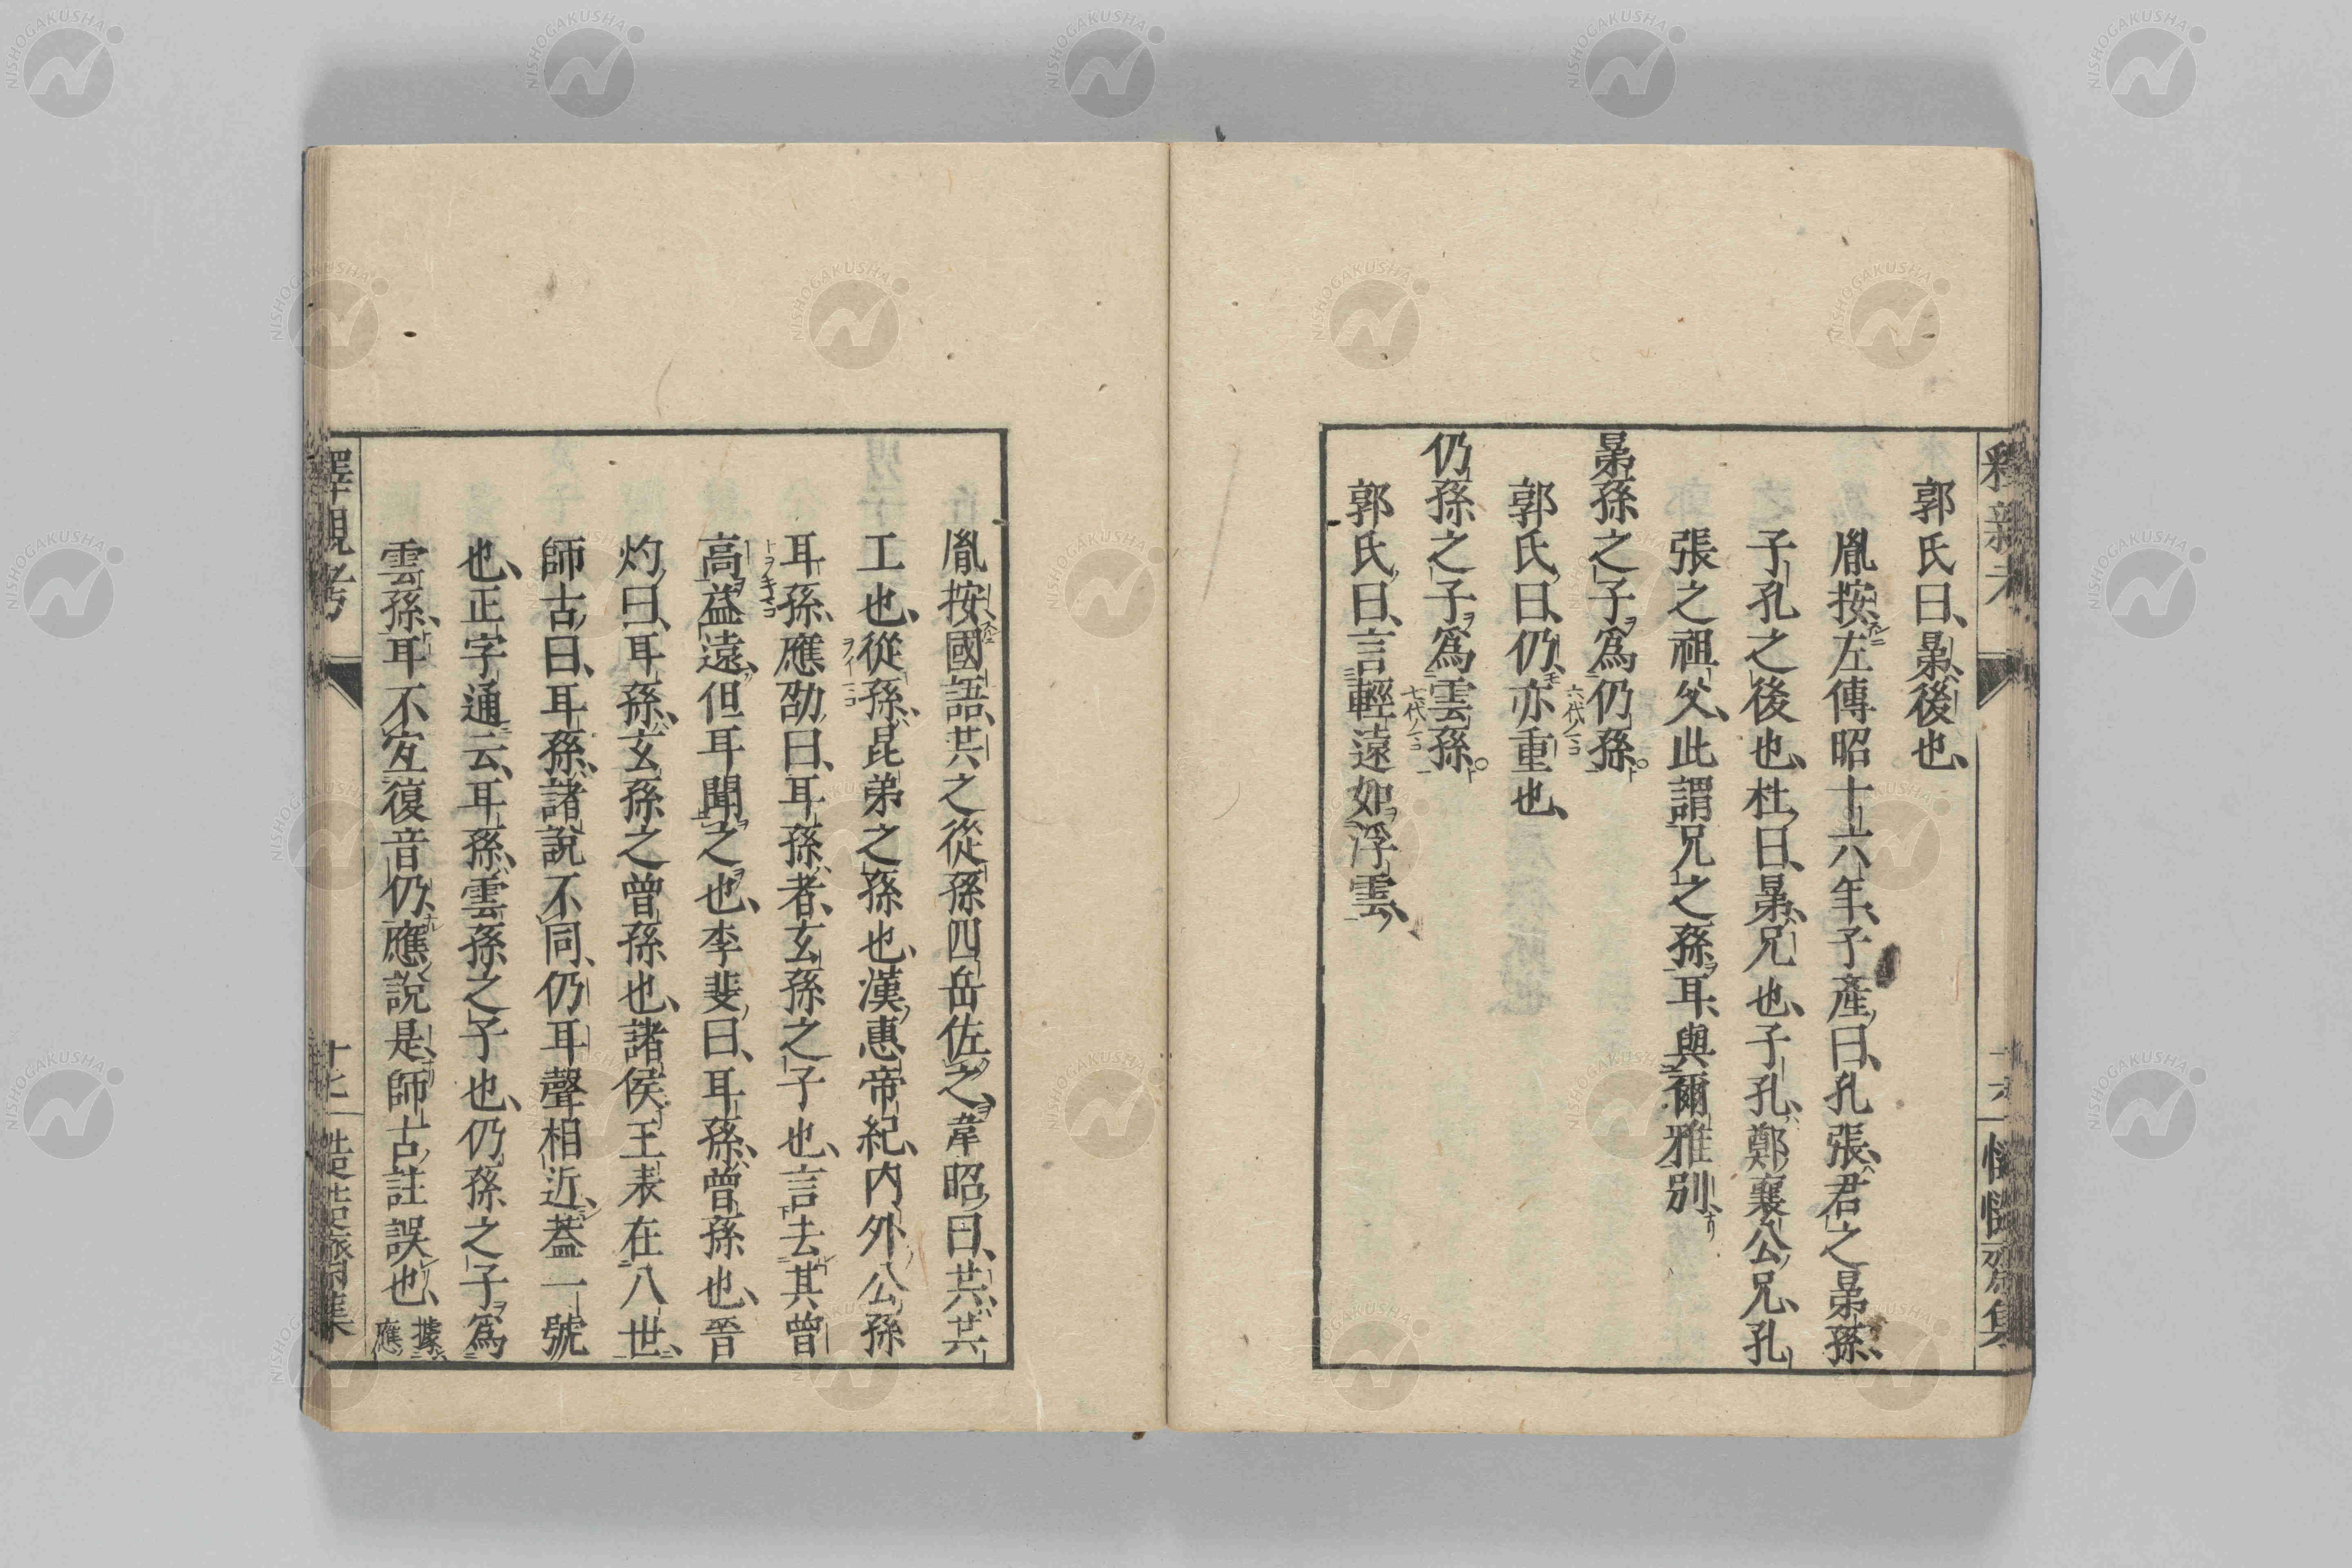 郭氏曰、晜後也、
胤按、左傳昭十六年、子產曰、孔張、君之晜孫、
子孔之後也、杜曰、晜、兄也、子孔、鄭襄公兄、孔
張之祖父、此謂兄之孫耳、與爾雅別、
晜孫之子爲仍孫。
郭氏曰、仍、亦重也、
仍孫之子爲雲孫。
郭氏曰、言輕遠如浮雲、
胤按、國語、共之從孫四岳佐之、韋昭曰、共、共
工也、從孫、昆弟之孫也、漢惠帝紀、内外公孫
耳孫、應劭曰、耳孫者、玄孫之子也、言去其曾
高益遠、但耳聞之也、李斐曰、耳孫、曾孫也、晉
灼曰、耳孫、玄孫之曾孫也、諸侯王表在八世、
師古曰、耳孫、諸說不同、仍耳聲相近、蓋一號
也、正字通云、耳孫、雲孫之子也、仍孫之子爲
雲孫、耳不宐復音仍、應說是、師古註誤也、據
應
釋親考
十七
NISHOGAKUSHA